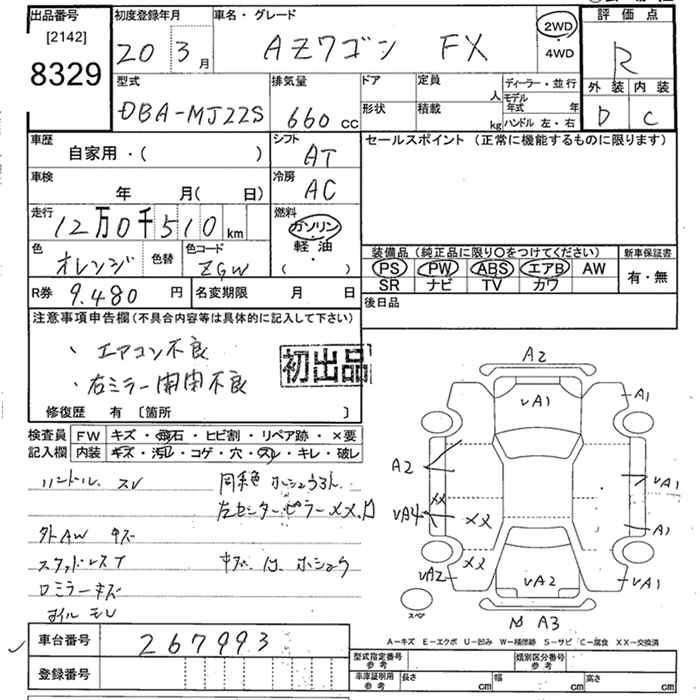 出品番号 初度登録年月 車名・グレード 評価点
[2142]
8329
20 3月 AZワゴン FX 2WD ・4WD R
型式 排気量 ドア 定員 人 ディーラー・並行 外装 内装
DBA-MJ22S 660 cc 形状 積載 kg モデル年式 年 ハンドル 左・右 D C
車歴 シフト セールスポイント (正常に機能するものに限ります)
自家用・( ) AT
車検 冷房
年 月( 日) AC
走行 燃料
12万0千510km ガソリン
軽油
( ・ )
色 色替 色コード
オレンジ ZGW
装備品 (純正品に限り○をつけてください) 新車保証書
PS PW ABS エアB AW 有・無
SR ナビ TV カワ
R券 9.480 円 名変期限 月 日
後日品
注意事項申告欄 (不具合内容等は具体的に記入して下さい)
、エアコン不良
、右ミラー開閉不良
初出品
修復歴 有 〔箇所 〕
検査員 FW キズ・飛石・ヒビ割・リペア跡・×要
記入欄 内装 キズ・汚れ・コゲ・穴・スレ・キレ・破レ
ハンドル スレ 同系色 ホシュウろん
左センターピラーXX.
外AW キズ
スタッドレス キズ、 ホシュウ
ロミラーキズ
オイルモレ
A2
A1
A1
A2
A1
A4
XX
XX
A1
XX
A2
A2
A1
スペア
A3
A-キズ E-エクボ U-凹み W-補修跡 S-サビ C-腐食 XX-交換済
車台番号 267993
登録番号
型式指定番号 参考 類別区分番号 参考
車庫証明用 参考 長さ cm 幅 cm 高さ cm